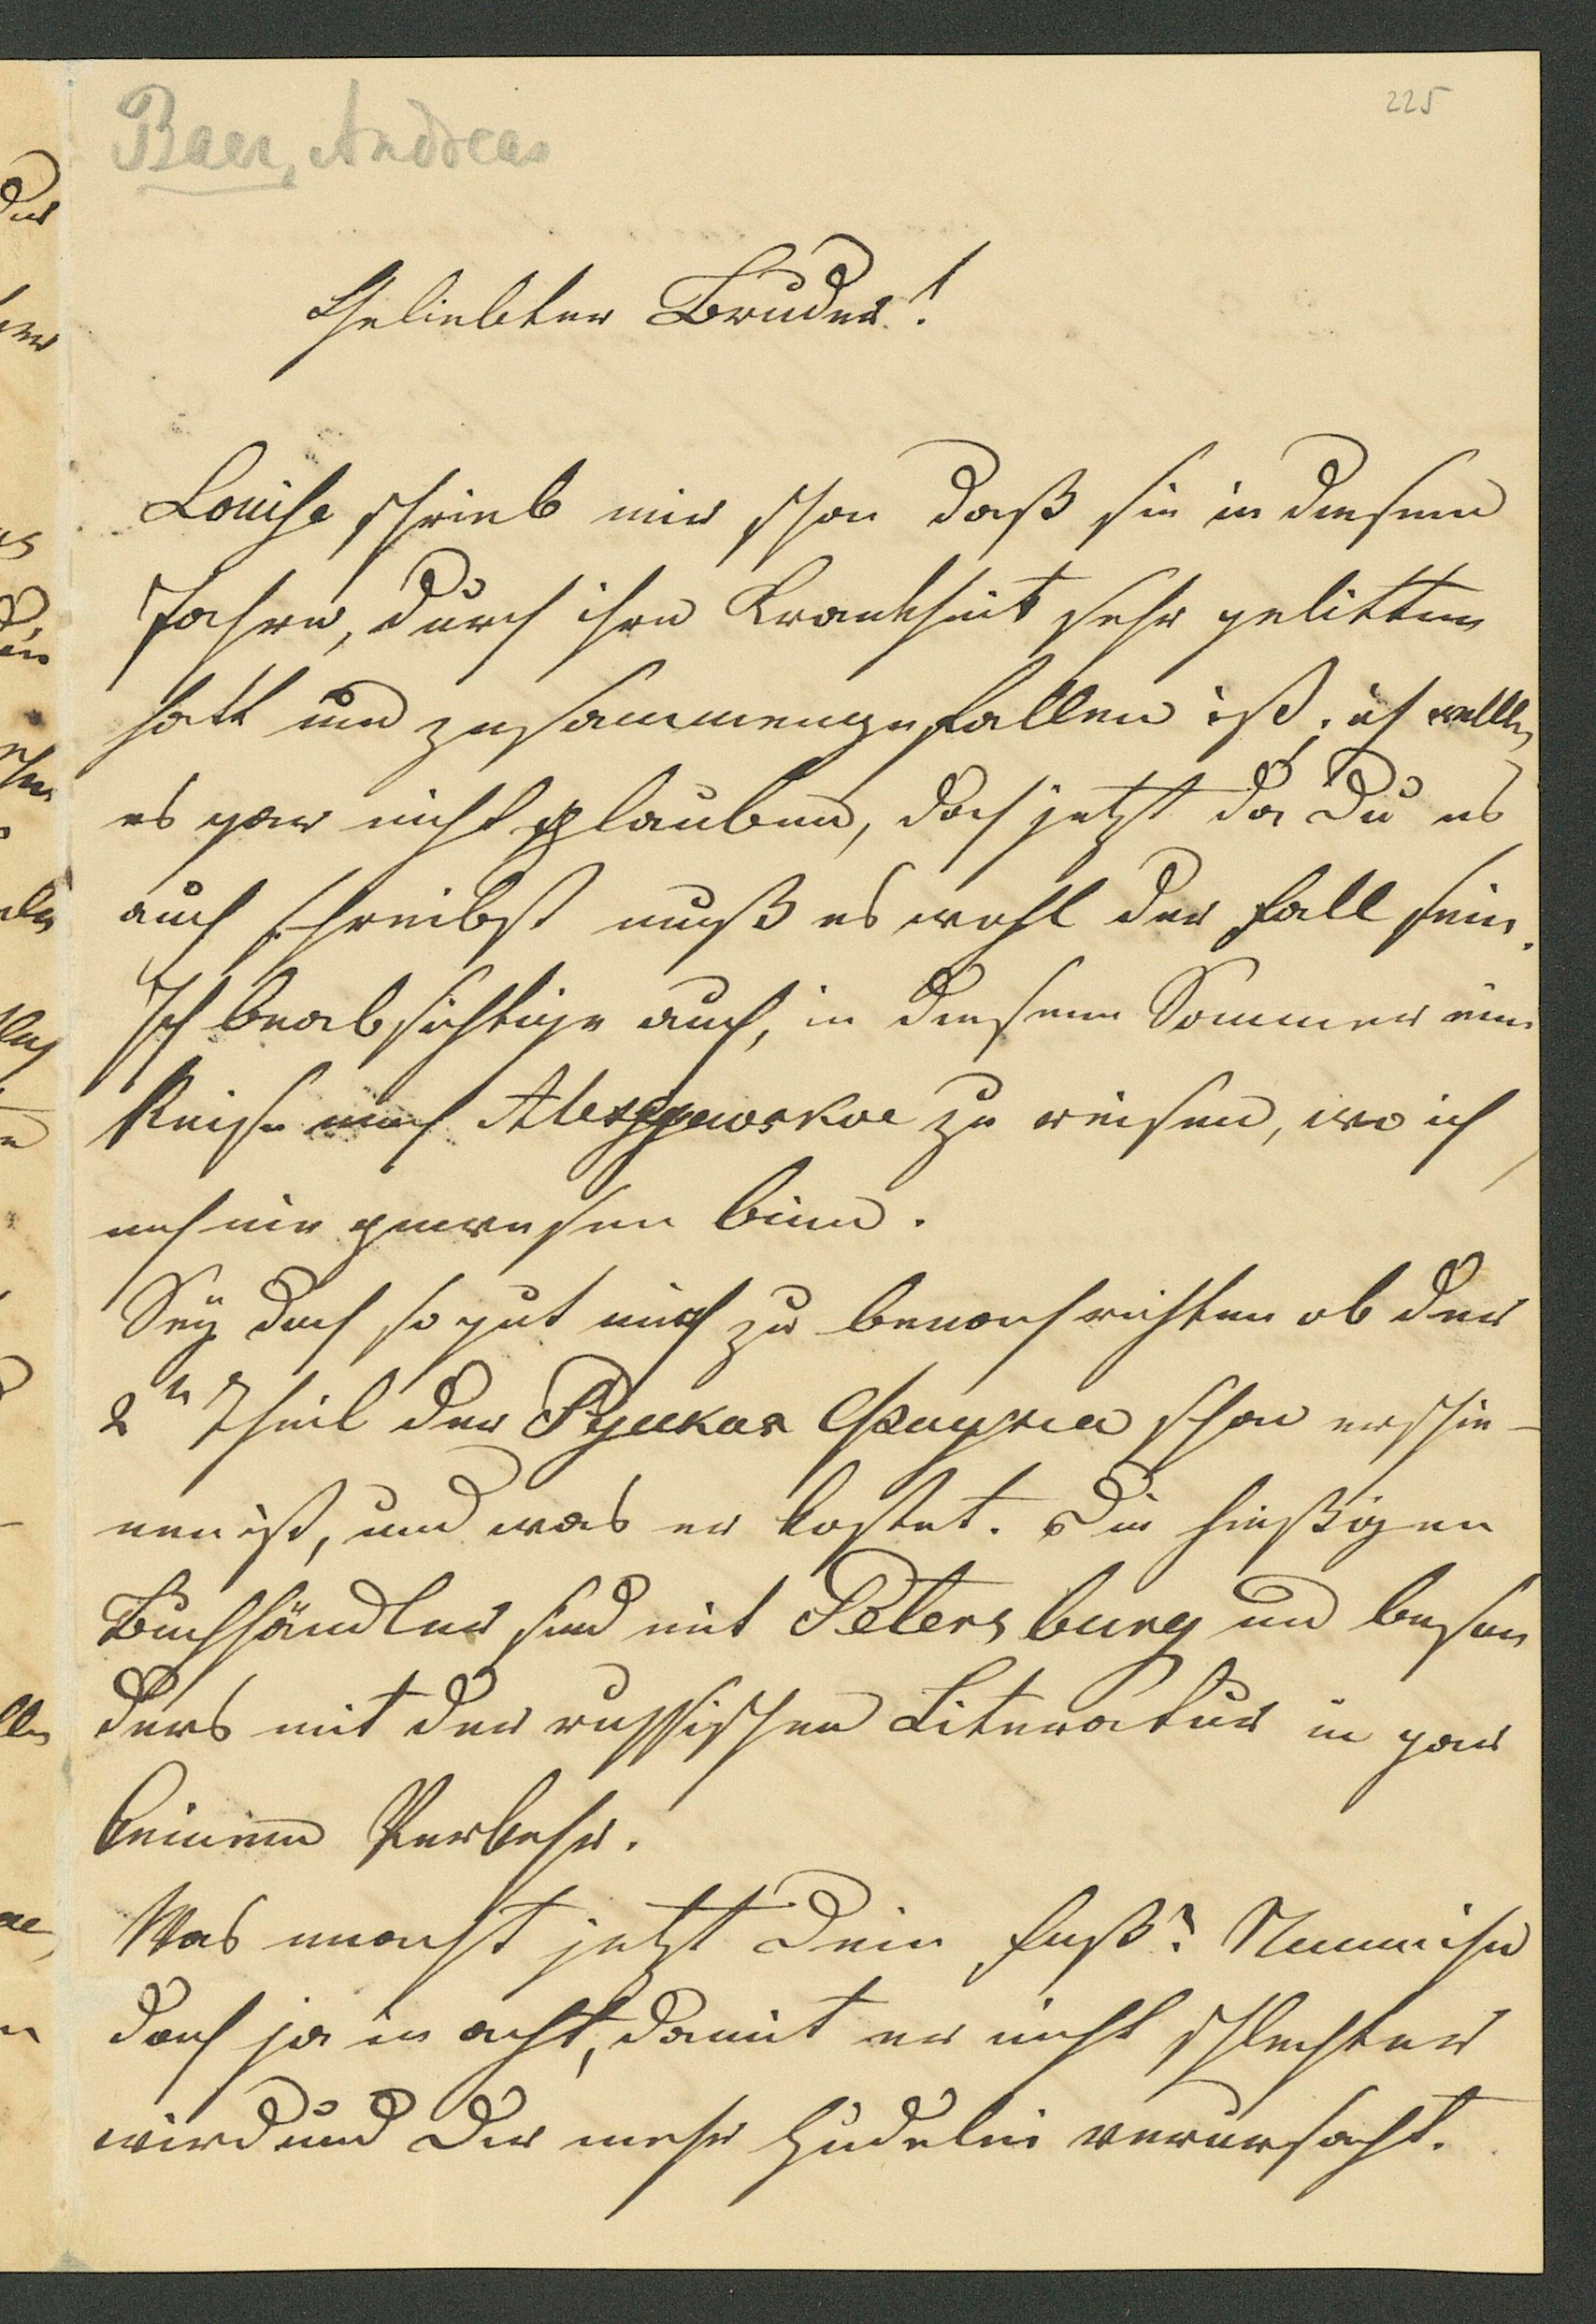 225
Baer, Andreas
Geliebter Bruder!
Louise schrieb mir schon daß sie in diesem
Jahre, durch ihre Krankheit sehr gelitten
hatt und zusammengefallen ist; ich wollte
es gar nicht glauben, doch jetzt da Du es
auch schreibst muß es wohl der Fall sein.
Ich beabsichtige auch, in diesem Sommer eine
Reise nach zu reisen, wo ich
noch nie gewesen binn.
Sey doch so gut mich zu benachrichten ob der
2te Theil der Русская Фауна schon erschie-
nen ist, und was er kostet. Die hießigen
Buchhändler sind mit Petersburg und beson
ders mit der russischen Literatur in gar
keinem Verkehr.
Was macht jetzt Dein Fuß? Nimm ihn
doch ja in acht, damit er nicht schlechter
wird und Dir mehr Hudelei verursacht.